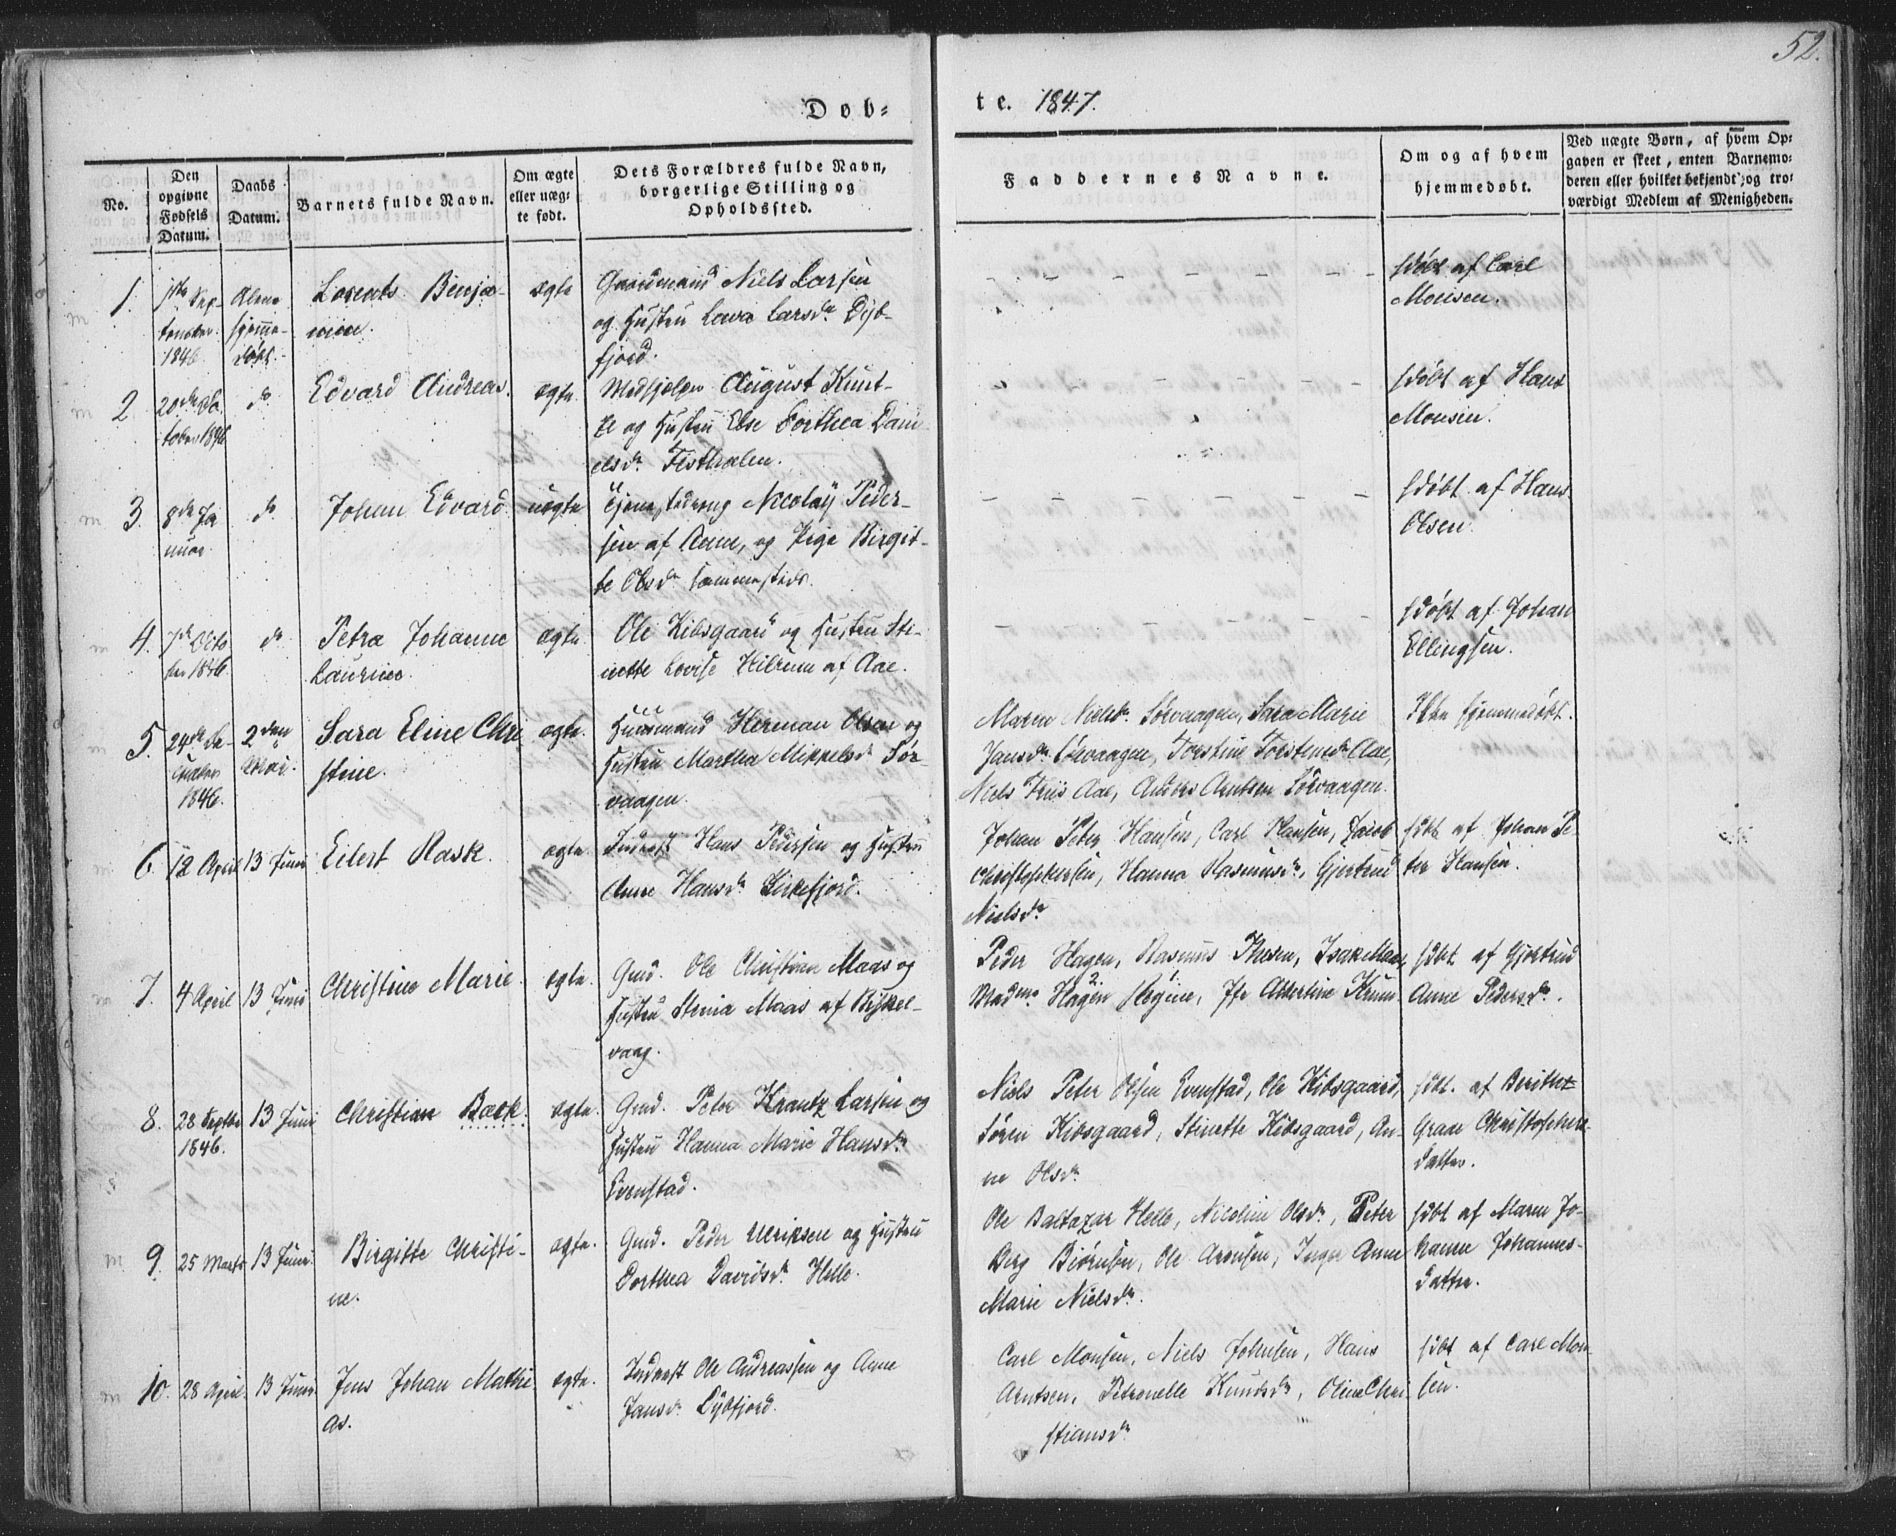 52.
Døb=
te. 1847.
No.
Den opgivne Fødsels Datum.
Daabs Datum.
Barnets fulde Navn.
Om ægte eller uægte født.
Dets Forældres fulde Navn, borgerlige Stilling og Opholdssted.
Faddernes Navne.
Om og af hvem hjemmedøbt.
Ved uægte Børn, af hvem Opgaven er skeet, enten Barnemoderen eller hvilket bekjendt, og troværdigt Medlem af Menigheden.
1.
September
1846.
Alene
hjemme-
døbt.
Lorents Benja-
min.
ægte
Gaardmand Niels Larsen
og Hustru Lars dr.
fjord.
hdøbt af Carl
Monsen.
2
20de Oc-
tober 1846
do
Edvard Andreas.
ægte.
Medhjelper August Kunt-
ze og Hustru Else Dorthea Dani-
elsdr.
hdøbt af Hans
Monsen.
3.
8de Ja
nuar
do
Johan Edvard.
uægte
Nicolaý Peder-
sen af Aaen, og Pige Birgit-
te Olsdr sammesteds.
hdøbt af Hans
Olsen.
4.
7de Octo
ber 1846
do
Petra Johanne
Laurine.
ægte.
Ole Kibsgaard og Hustru Sti-
nette Lovise af Aae.
hdøbt af Johan
Ellingsen.
5.
24de
1846.
2den
Mai.
Sara Eline Chri
stine.
ægte.
Huusmand Herman Olsen og
Hustru Martha Mikkelsdr Sør-
vaagen.
Maren Nielsdr. Sørvaagen, Sara Marie
Jansdr Sørvaagen, Torstensdr Aae,
Niels Friis Aae, Anders Arntsen Sørvaagen.
Ikke hjemmedøbt.
6.
12 April
13 Juni
Eilert Rask.
ægte.
Inderst Hans Pedersen og Hustru
Anne Hansdr Kirkefjord.
Johan Peter Hansen, Carl Hansen, Jacob
Christophersen, Hanna Rasmusdr, Gjertrud
Nielsdr
hdbt af Johan Pe
ter Hansen.
7.
4 April
13 Juni
Christine Marie.
ægte.
Gmd. Ole Christian Maas og
Hustru Maas af
vaag.
Peder Hagen, Rasmus Isak Maas,
Madme Hagen, Jfr Albertine
hdbt af Gjertrud
Anne Pedersdr.
8.
28 Septbr
1846.
13 Juni
Christian Back.
ægte.
Gmd. Peter Krantz Larsen og
Hustru Hanna Marie Hansdr
Evenstad.
Niels Peter Olsen Evenstad, Ole Kibsgaard,
Søren Kibsgaard, Stinette Kibsgaard, An-
ne Olsdr
hdbt. af
Christopher
datter.
9.
25 Marts
13 Juni.
Birgitte Christi-
ne.
ægte.
Gmd. Peder Ulriksen og Hustru
Dorthea Davidsdr Helle.
Ole Baltazar Helle, Nicoline Olsdr, Peter
Berg Biørnsen, Ole Arensen, Inger Anne
Marie Nielsdr.
hdbt af Maren Jo-
hanne Johannes-
datter.
10.
28 April.
13 Juni
Jens Johan Mathi
as.
ægte.
Inderst Ole Andreassen og Anne
Jansdr
Carl Monsen, Niels Johnsen, Hans
Arntsen, Petronelle Knudsdr, Oline Chri
stiansdr
hdbt af Carl Mon
sen.